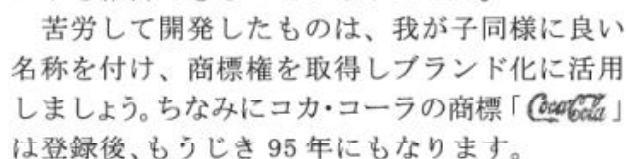 苦労して開発したものは、我が子同様に良い
名称を付け、商標権を取得しブランド化に活用
しましょう。ちなみにコカ・コーラの商標「Coca-Cola」
は登録後、もうじき 95 年にもなります。